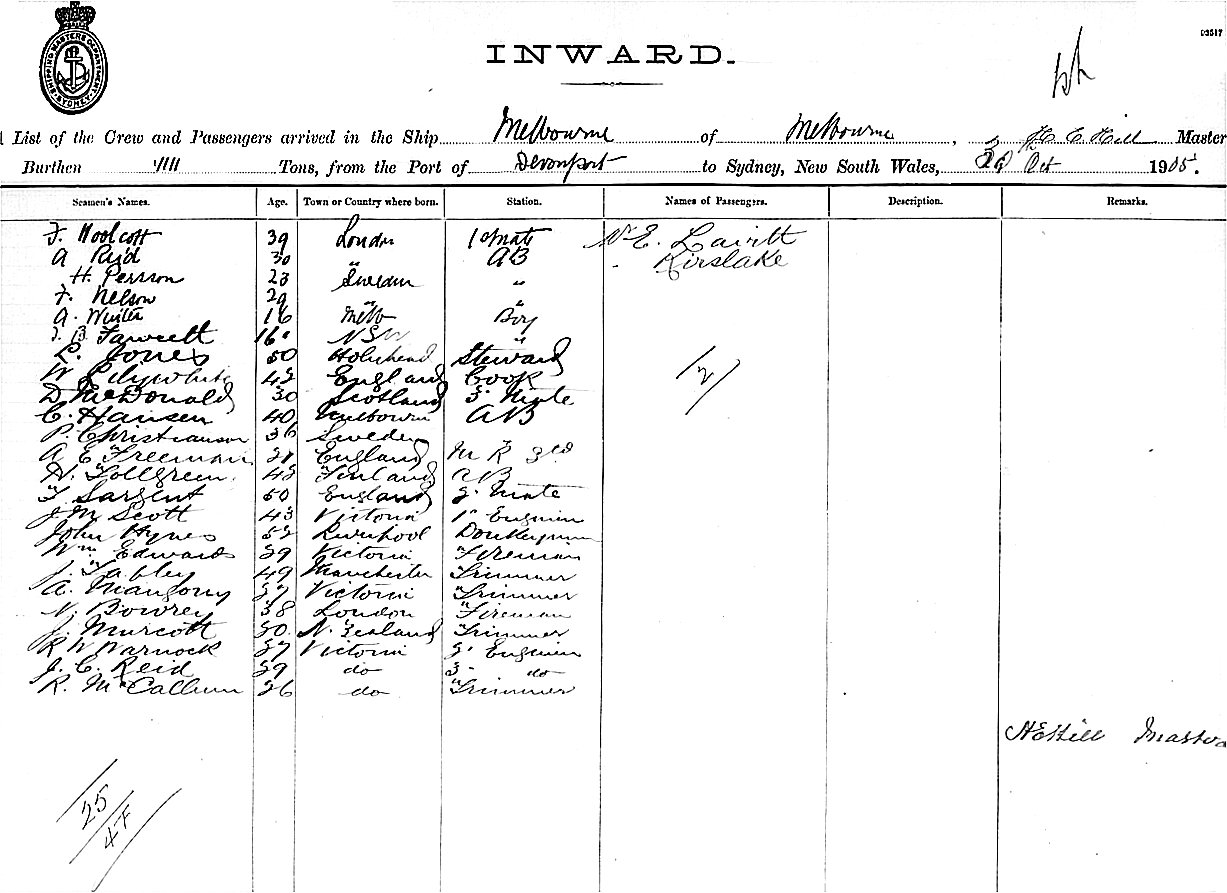 SHIPPING MASTERS DEPARTMENT SYDNEY
03517
INWARD.
List of the Crew and Passengers arrived in the Ship Melbourne of Melbourne, H C Hill Master
Burthen Tons, from the Port of Devonport to Sydney, New South Wales, Oct 1905.
Seamen's Names. Age. Town or Country where born. Station. Names of Passengers. Description. Remarks.
F. Woolcott 39 London 1st Mate Mr E. Lavitt
A Reid 30 " AB " Kirslake
H. Persson 23 Sweden "
F. Nelson 29 " "
A. Winter 16 Melb Boy
Fawcett 16 NSW "
L. Jones 50 Holyhead Steward
W Lilywhite 42 England Cook 2
D McDonald 30 Scotland Mate
C. Hansen 40 Melbourne AB
P. Christianson 36 Sweden "
A E Freeman England
H. Tollgreen 48 Finland AB
Sargent 50 England 2 Mate
J M Scott 43 Victoria 1st Enginee
John Hynes 52 Liverpool Donkeyman
Wm Edwards 39 Victoria Fireman
J. Tabley 49 Manchester Trimmer
A. Mangony 37 Victoria Trimmer
N. Bowrey 38 London Fireman
J. Murcott 30 N. Zealand Trimmer
R W Warnock 37 Victoria 2 Enginee
J. C. Reid 39 do 3 do
R. McCallum 26 do Trimmer
H C Hill Master
25
47